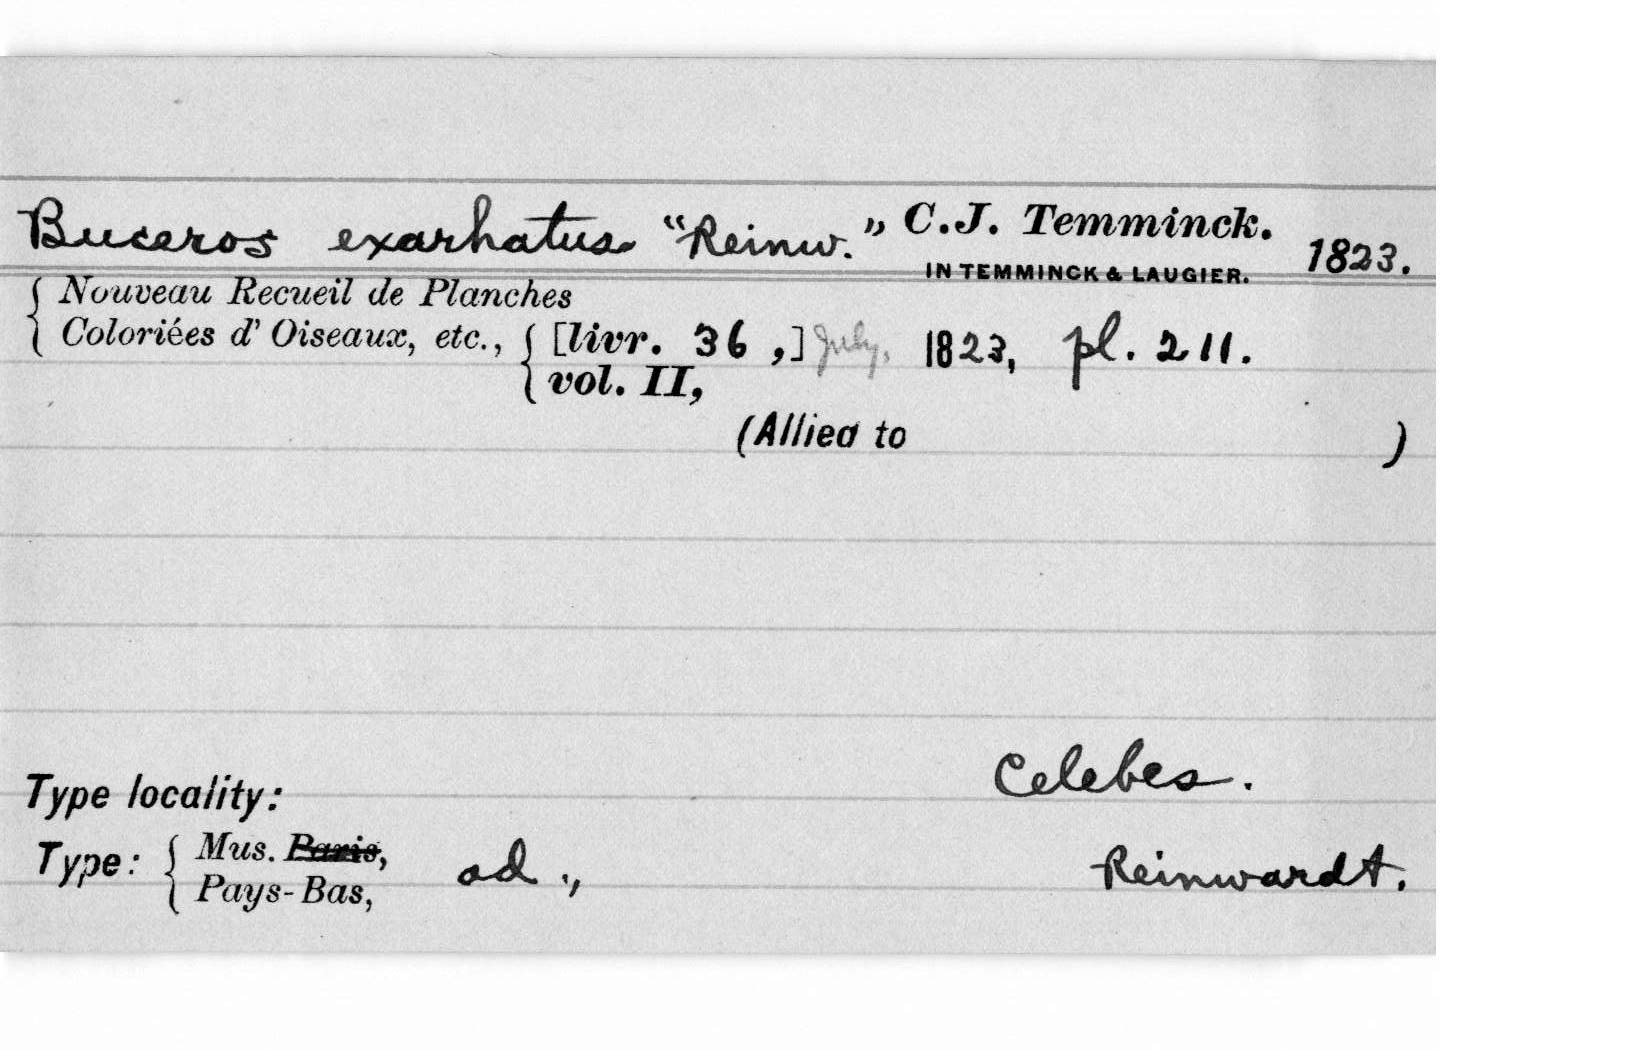 Buceros exarhatus "Reinw." C.J. Temminck. 1823.
IN TEMMINCK & LAUGIER.
Nouveau Recueil de Planches
Coloriées d' Oiseaux, etc., [livr. 36 ,] July, 1823, pl. 211.
vol. II,
(Allied to )
Type locality: Celebes.
Type: Mus. Paris, ad., Reinwardt.
Pays-Bas,